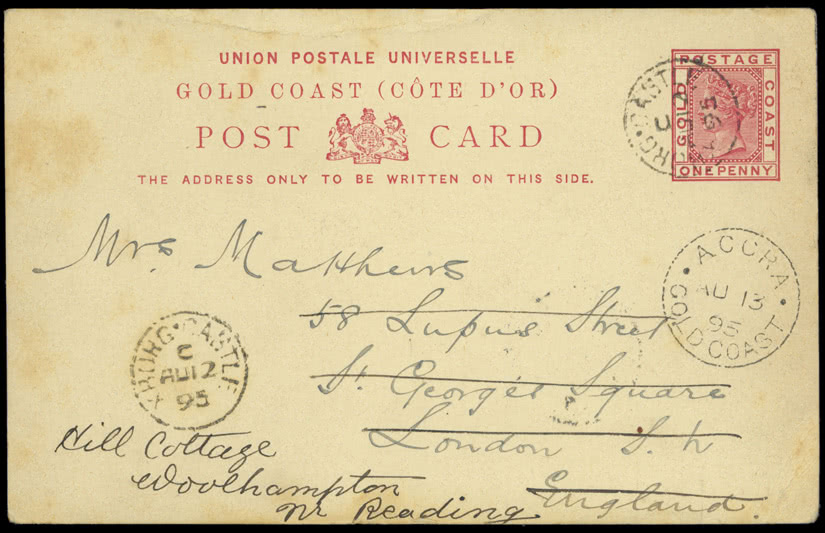 UNION POSTALE UNIVERSELLE
GOLD COAST (CÔTE D'OR)
POST CARD
THE ADDRESS ONLY TO BE WRITTEN ON THIS SIDE.
POSTAGE
GOLD
COAST
ONE PENNY
RG·CASTLE
Mrs. Matthews
58 Lupus Street
St. George's Square
London S.
England.
ACCRA
AU 13
95
GOLD COAST
XBORG·CASTLE
C
AU 12
95
Hill Cottage
Woolhampton
Nr Reading